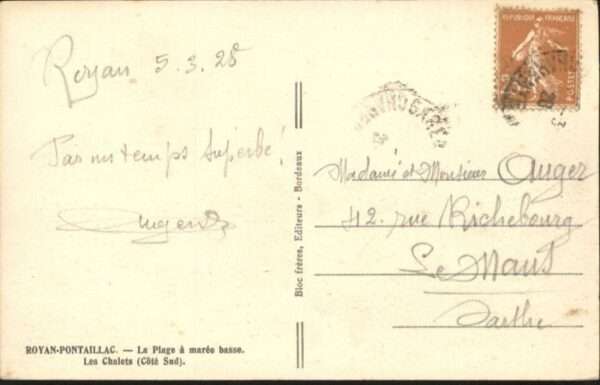 Royan 5.3.28
Par un temps superbe!
ROYAN-PONTAILLAC. — La Plage à marée basse.
Les Chalets (Côté Sud).
Bloc frères, Editeurs - Bordeaux
REPUBLIQUE FRANÇAISE
POSTES
Madame et Monsieur Auger
42. rue Richebourg
Le Mans
Sarthe